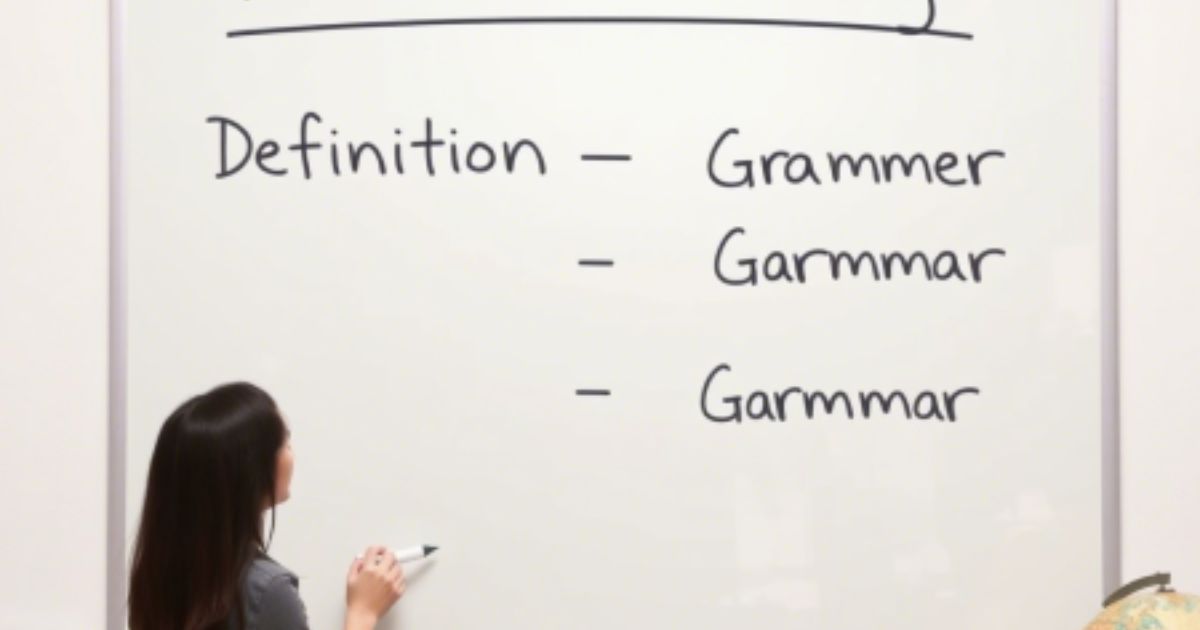 Definition – Grammer
– Garmmar
– Garmmar